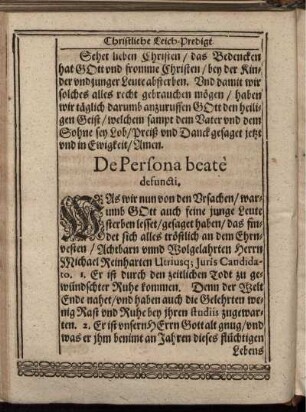 Christliche Leich-Predigt
Sehet lieben Christen / das Bedencken
hat GOtt vnd fromme Christen / bey der Kin-
der vnd junger Leute absterben. Vnd damit wir
solches alles recht gebrauchen mögen / haben
wir täglich darumb anzuruffen GOtt den heili-
gen Geist / welchem sampt dem Vater vnd dem
Sohne sey Lob / Preiß vnd Danck gesaget jetzt
vnd in Ewigkeit / Amen.
De Persona beatè
defuncti,
WAs wir nun von den Vrsachen / war-
umb GOtt auch seine junge Leute
sterben lesset / gesaget haben / das fin-
det sich alles tröstlich an dem Ehrn-
vesten / Achtbarn vnnd Wolgelahrten Herrn
Michael Reinharten Utriusq; Juris Candida-
to. 1. Er ist durch den zeitlichen Todt zu ge-
wündschter Ruhe kommen. Denn der Welt
Ende nahet / vnd haben auch die Gelehrten we-
nig Rast vnd Ruhe bey jhren studiis zugewar-
ten. 2. Er ist vnserm HErrn Gott alt gnug / vnd
was er jhm benimt an Jahren dieses flüchtigen
Lebens